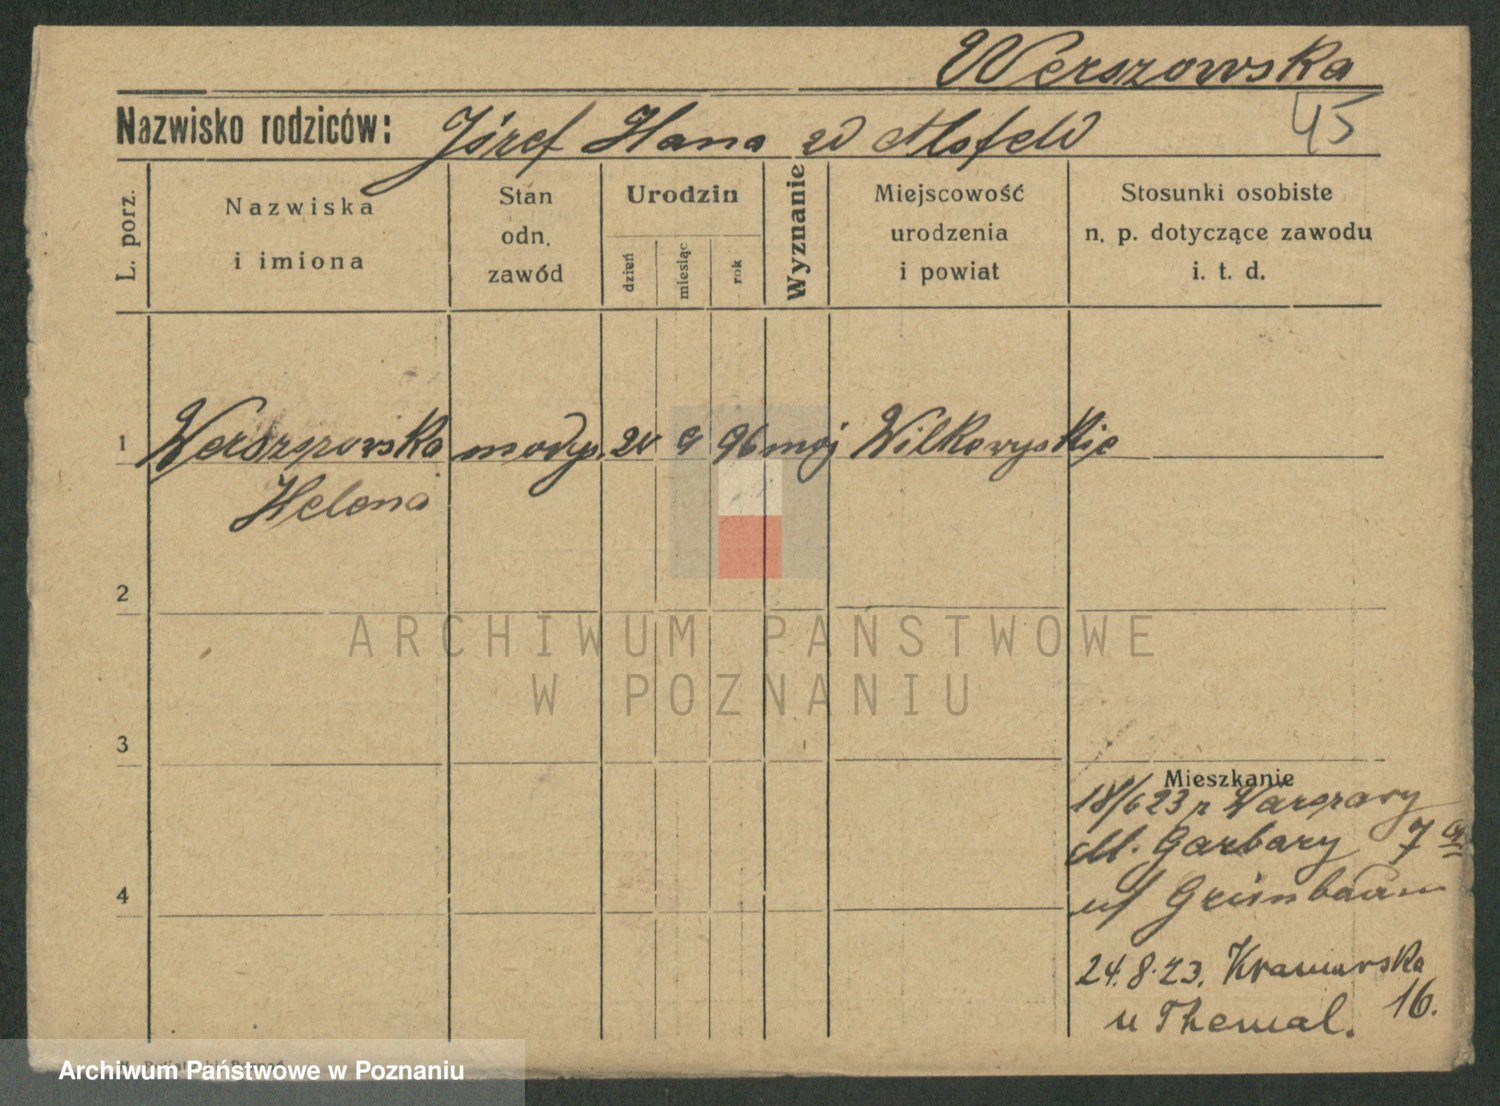 Werszowska
45
Nazwisko rodziców: Józef Hana
L. porz.
Nazwiska
i imiona
Stan
odn.
zawód
Urodzin
dzień
miesiąc
rok
Wyznanie
Miejscowość
urodzenia
i powiat
Stosunki osobiste
n. p. dotyczące zawodu
i. t. d.
1 modyp. 9 96 moj Wilkowyskie
Helena
2
ARCHIWUM PAŃSTWOWE
W POZNANIU
3
Mieszkanie
18/6 23 z Warszawy
M. Garbary 7 a
Grünbaum
4
24.8.23. Kramarska
u Themal. 16.
Archiwum Państwowe w Poznaniu